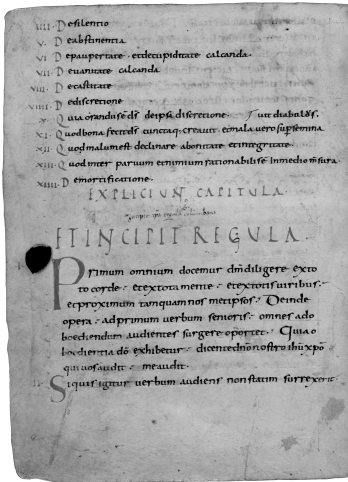 IIII · De silentio
V · De abstinentia
VI · De paupertate · et de cupiditate calcanda ·
VII · De uanitate calcanda
VIII · De castitate
VIIII · De discretione
X · Quia orandus est ds de ipsa discretione ·
XI · Quod bona fecit ds cunctaq; creauit · et mala uero
XII · Quod malum est declinare abonitate et integritate ·
XIII · Quod inter paruum et nimium rationabilis est In medio
XIIII · De mortificatione ·
EXPLICIUNT CAPITULA ·
ET INCIPIT REGULA ·
Primum omnium docemur dm diligere ex to
to corde · et ex tota mente · et ex totis uiribus ·
et proximum tanquam nos metipsos · Deinde
opera · ad primum uerbum senioris · omnes ad o
boediendum audientes surgere oportet · Quia o
boedientia do exhibetur · dicente dno nostro ihu xpo
qui uos audit · me audit ·
Siquis igitur uerbum audiens non statim surrexerit ·